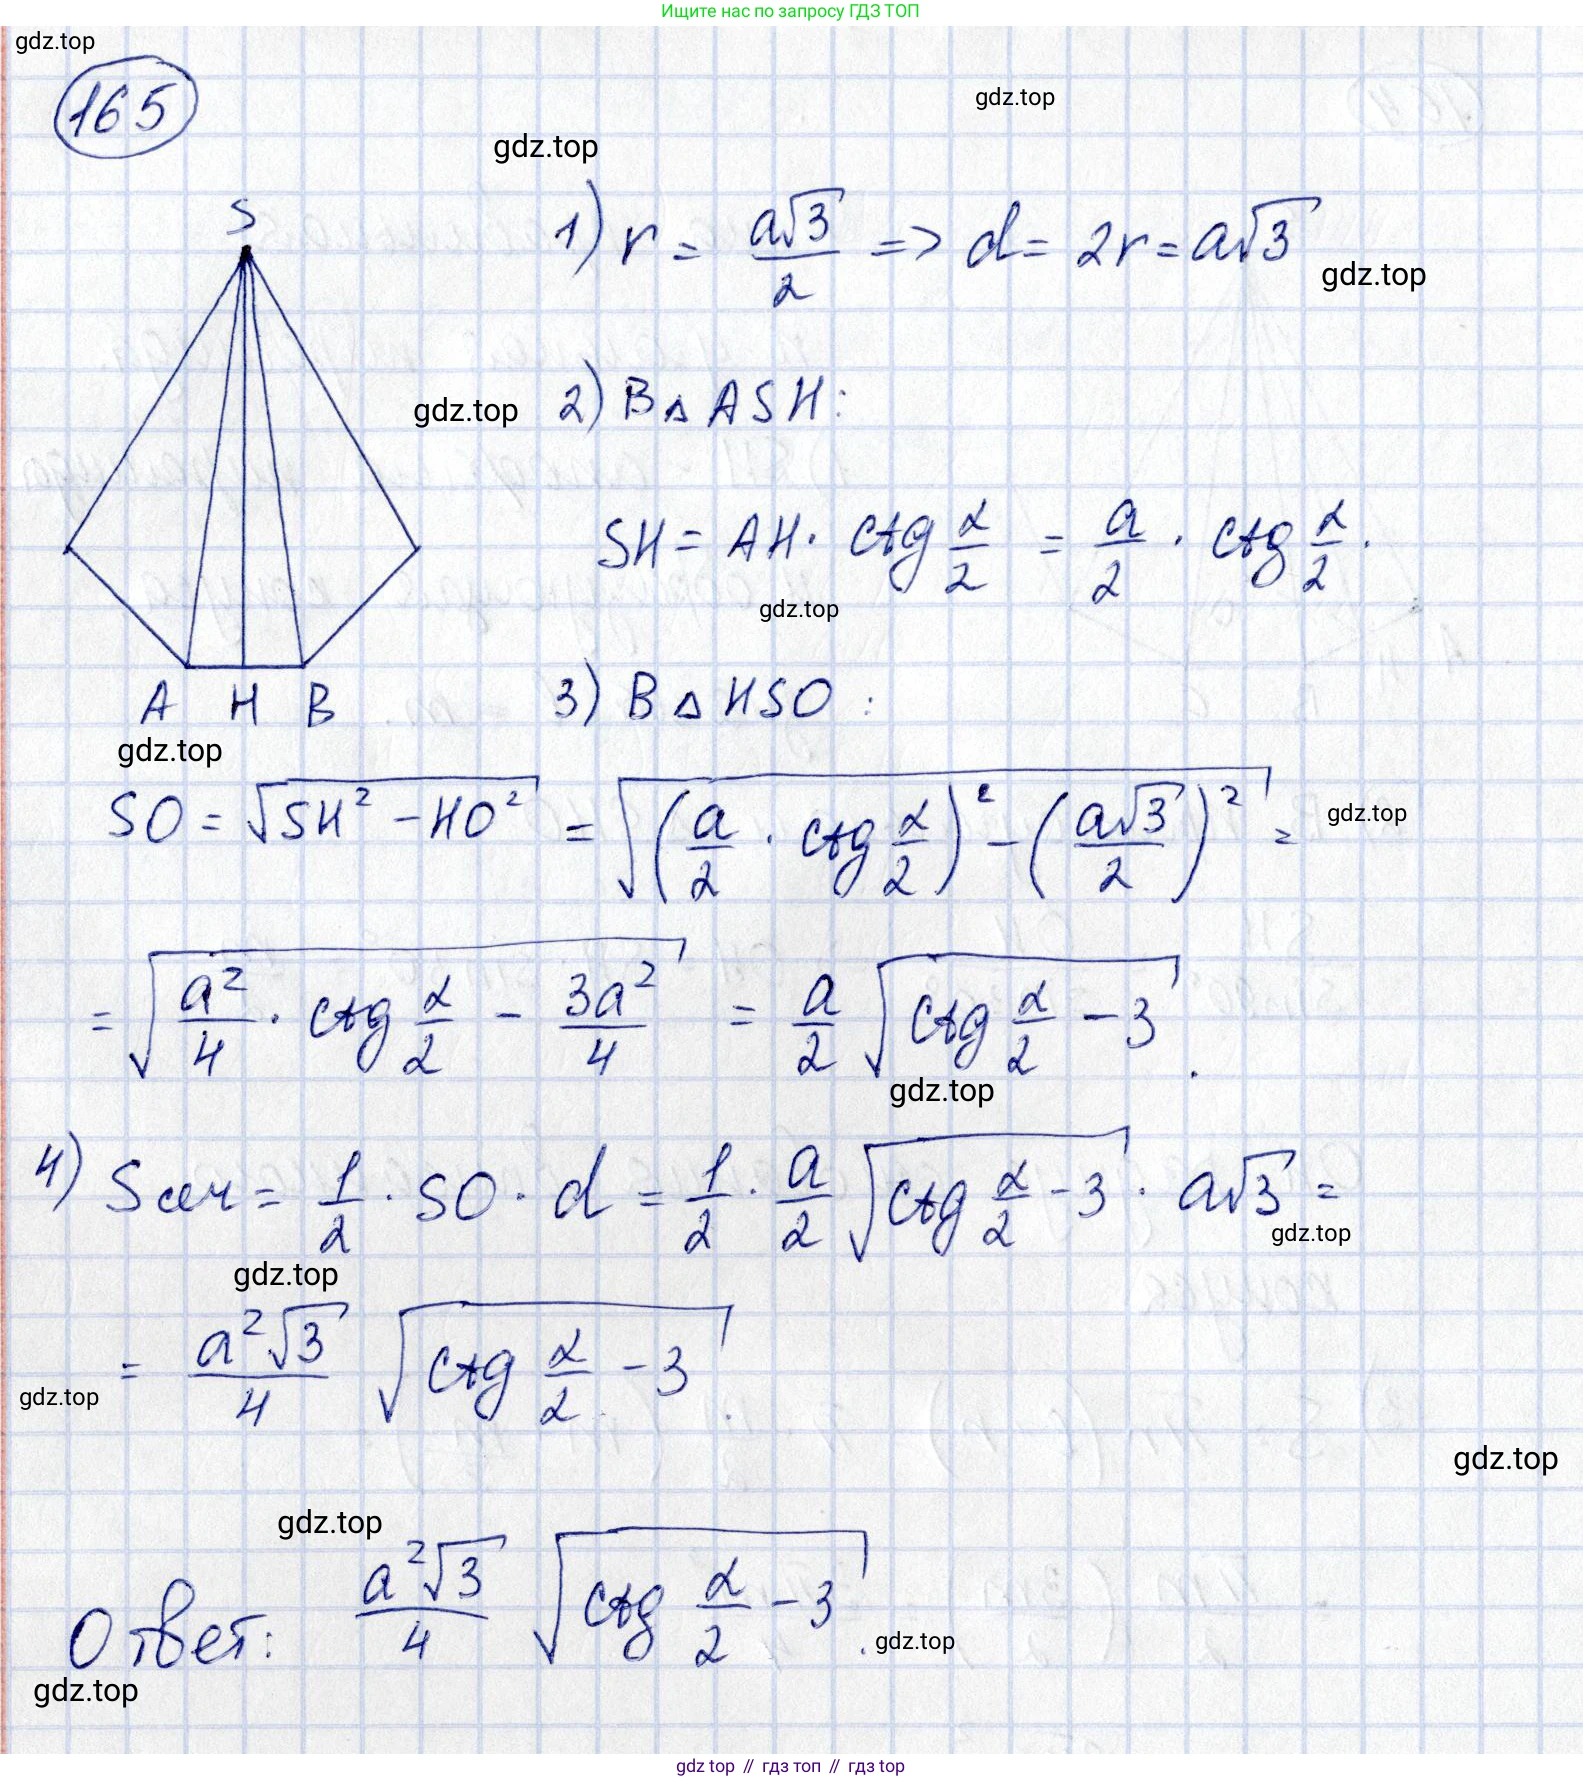 Ищите нас по запросу ГДЗ ТОП
gdz.top
165
gdz.top
gdz.top
S
1) r = a√3/2 => d = 2r = a√3
gdz.top
gdz.top
2) В △ ASH:
SH = AH · ctg α/2 = a/2 · ctg α/2.
gdz.top
A H B
3) В △ HSO:
gdz.top
SO = √(SH² - HO²) = √((a/2 · ctg α/2)² - (a√3/2)²) =
gdz.top
= √(a²/4 · ctg α/2 - 3a²/4) = a/2 √(ctg α/2 - 3).
gdz.top
4) Sсеч = 1/2 · SO · d = 1/2 · a/2 √(ctg α/2 - 3) · a√3 =
gdz.top
gdz.top
= a²√3/4 √(ctg α/2 - 3).
gdz.top
gdz.top
gdz.top
Ответ: a²√3/4 √(ctg α/2 - 3).
gdz.top
gdz.top
gdz top // гдз топ // гдз top